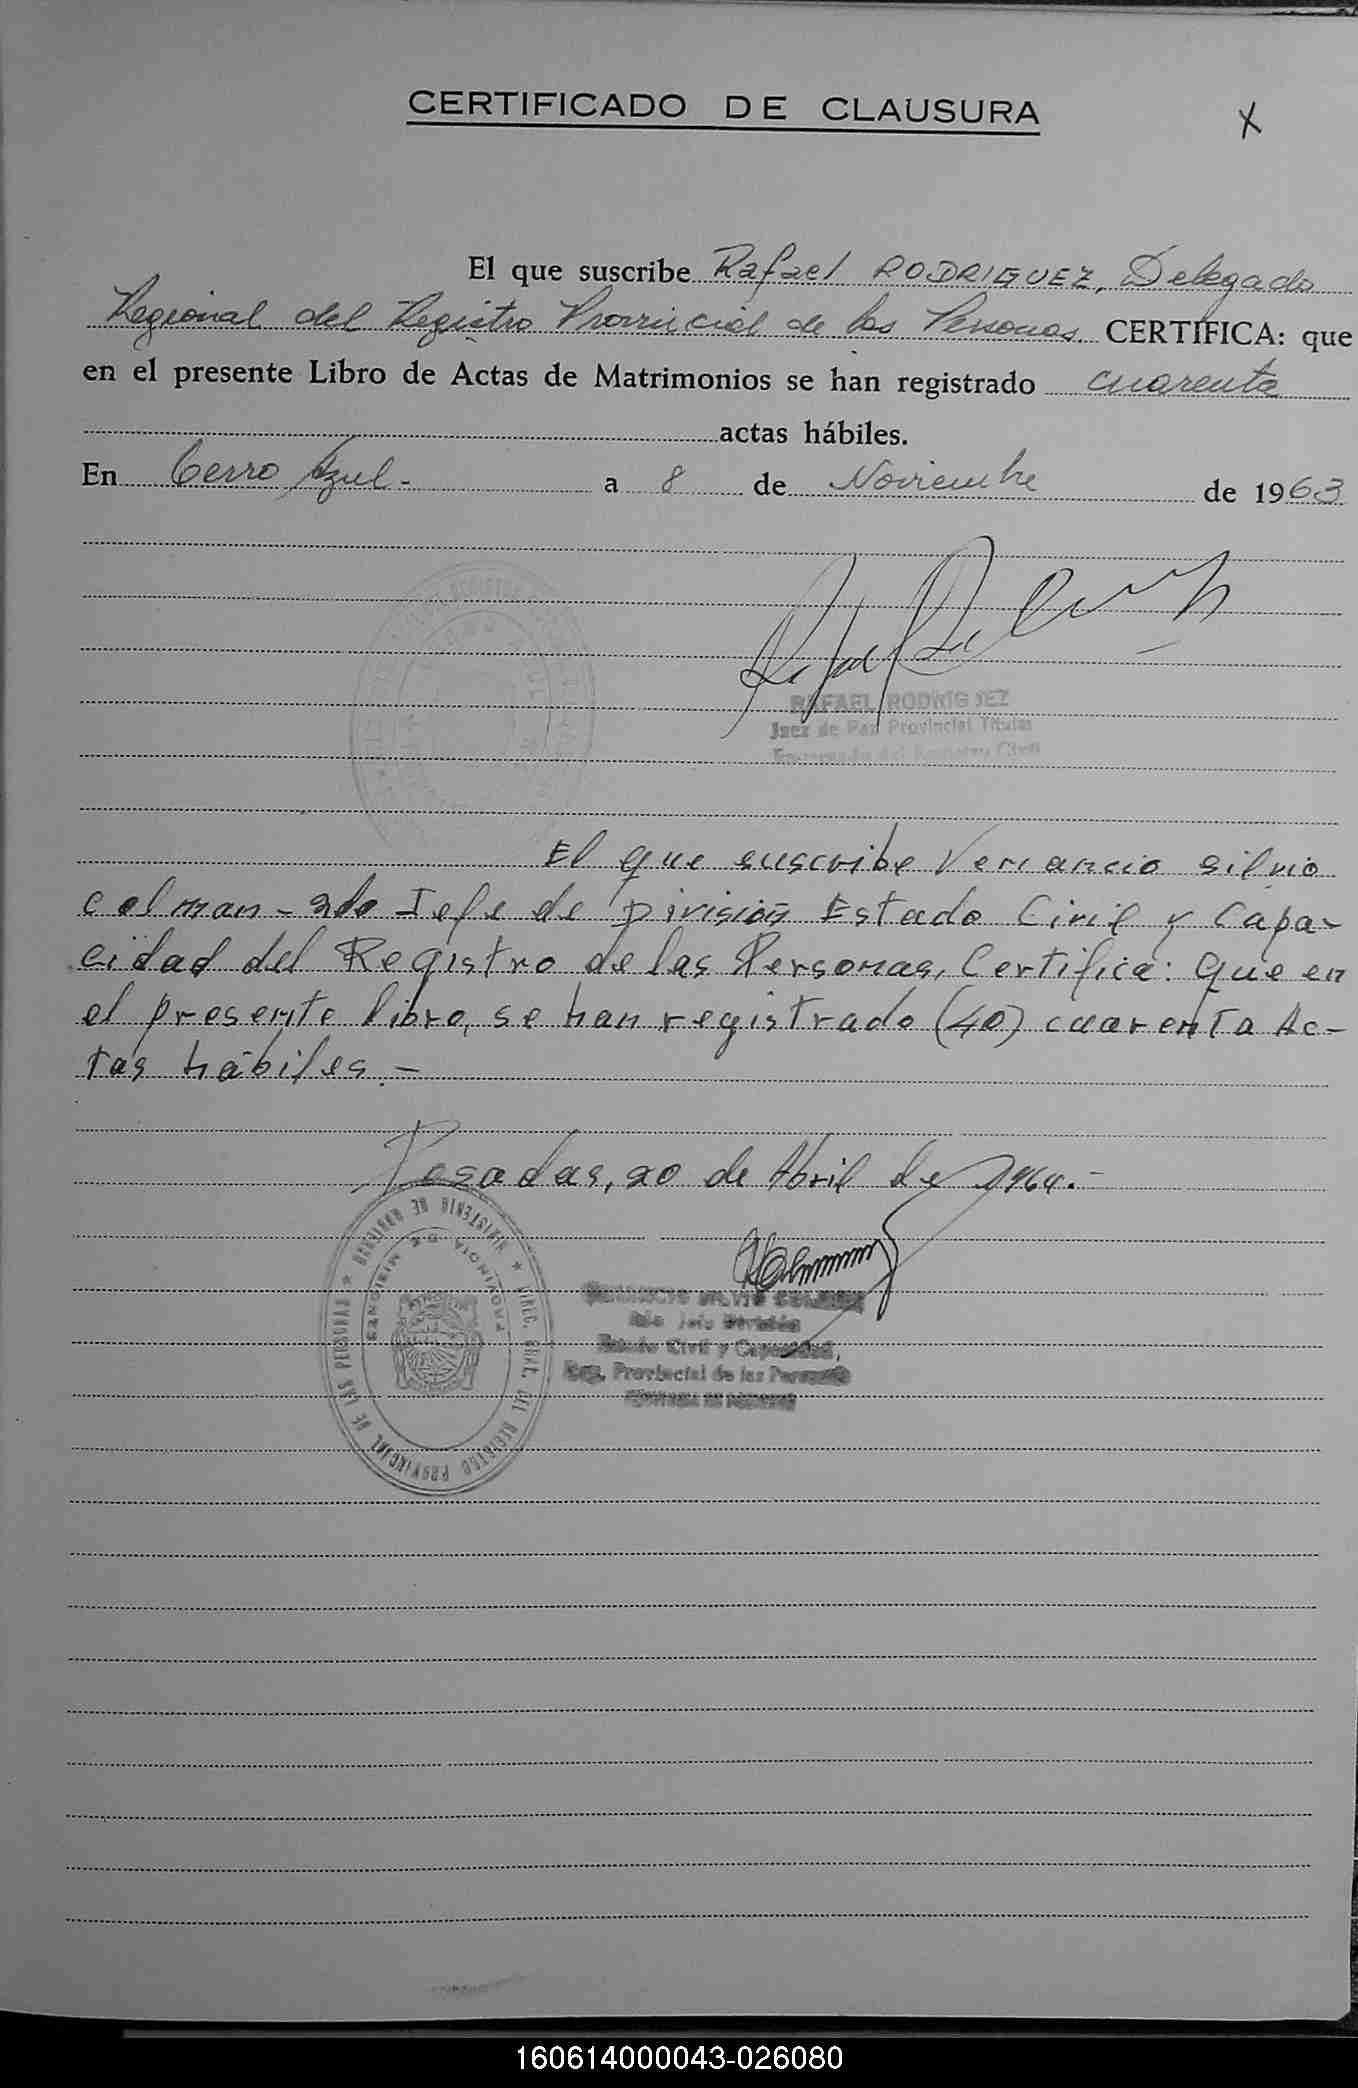 CERTIFICADO DE CLAUSURA
X
El que suscribe Rafael RODRIGUEZ, Delegado
Regional del Registro Provincial de las Personas. CERTIFICA: que
en el presente Libro de Actas de Matrimonios se han registrado cuarenta
actas hábiles.
En Cerro Azul.- a 8 de Noviembre de 1963
RAFAEL RODRIGUEZ
Juez de Paz Provincial Titular
Encargado del Registro Civil
El que suscribe Venancio Silvio
Colman - 2do Jefe de División Estado Civil y Capa-
cidad del Registro de las Personas, Certifica: Que en
el presente libro, se han registrado (40) cuarenta Ac-
tas hábiles.-
Posadas, 20 de Abril de 1964.-
MINISTERIO DE GOBIERNO * DIREC. GRAL. DEL REGISTRO PROVINCIAL DE LAS PERSONAS *
PROVINCIA DE MISIONES
VENANCIO SILVIO COLMAN
2do Jefe División
Estado Civil y Capacidad,
Reg. Provincial de las Personas
PROVINCIA DE MISIONES
160614000043-026080